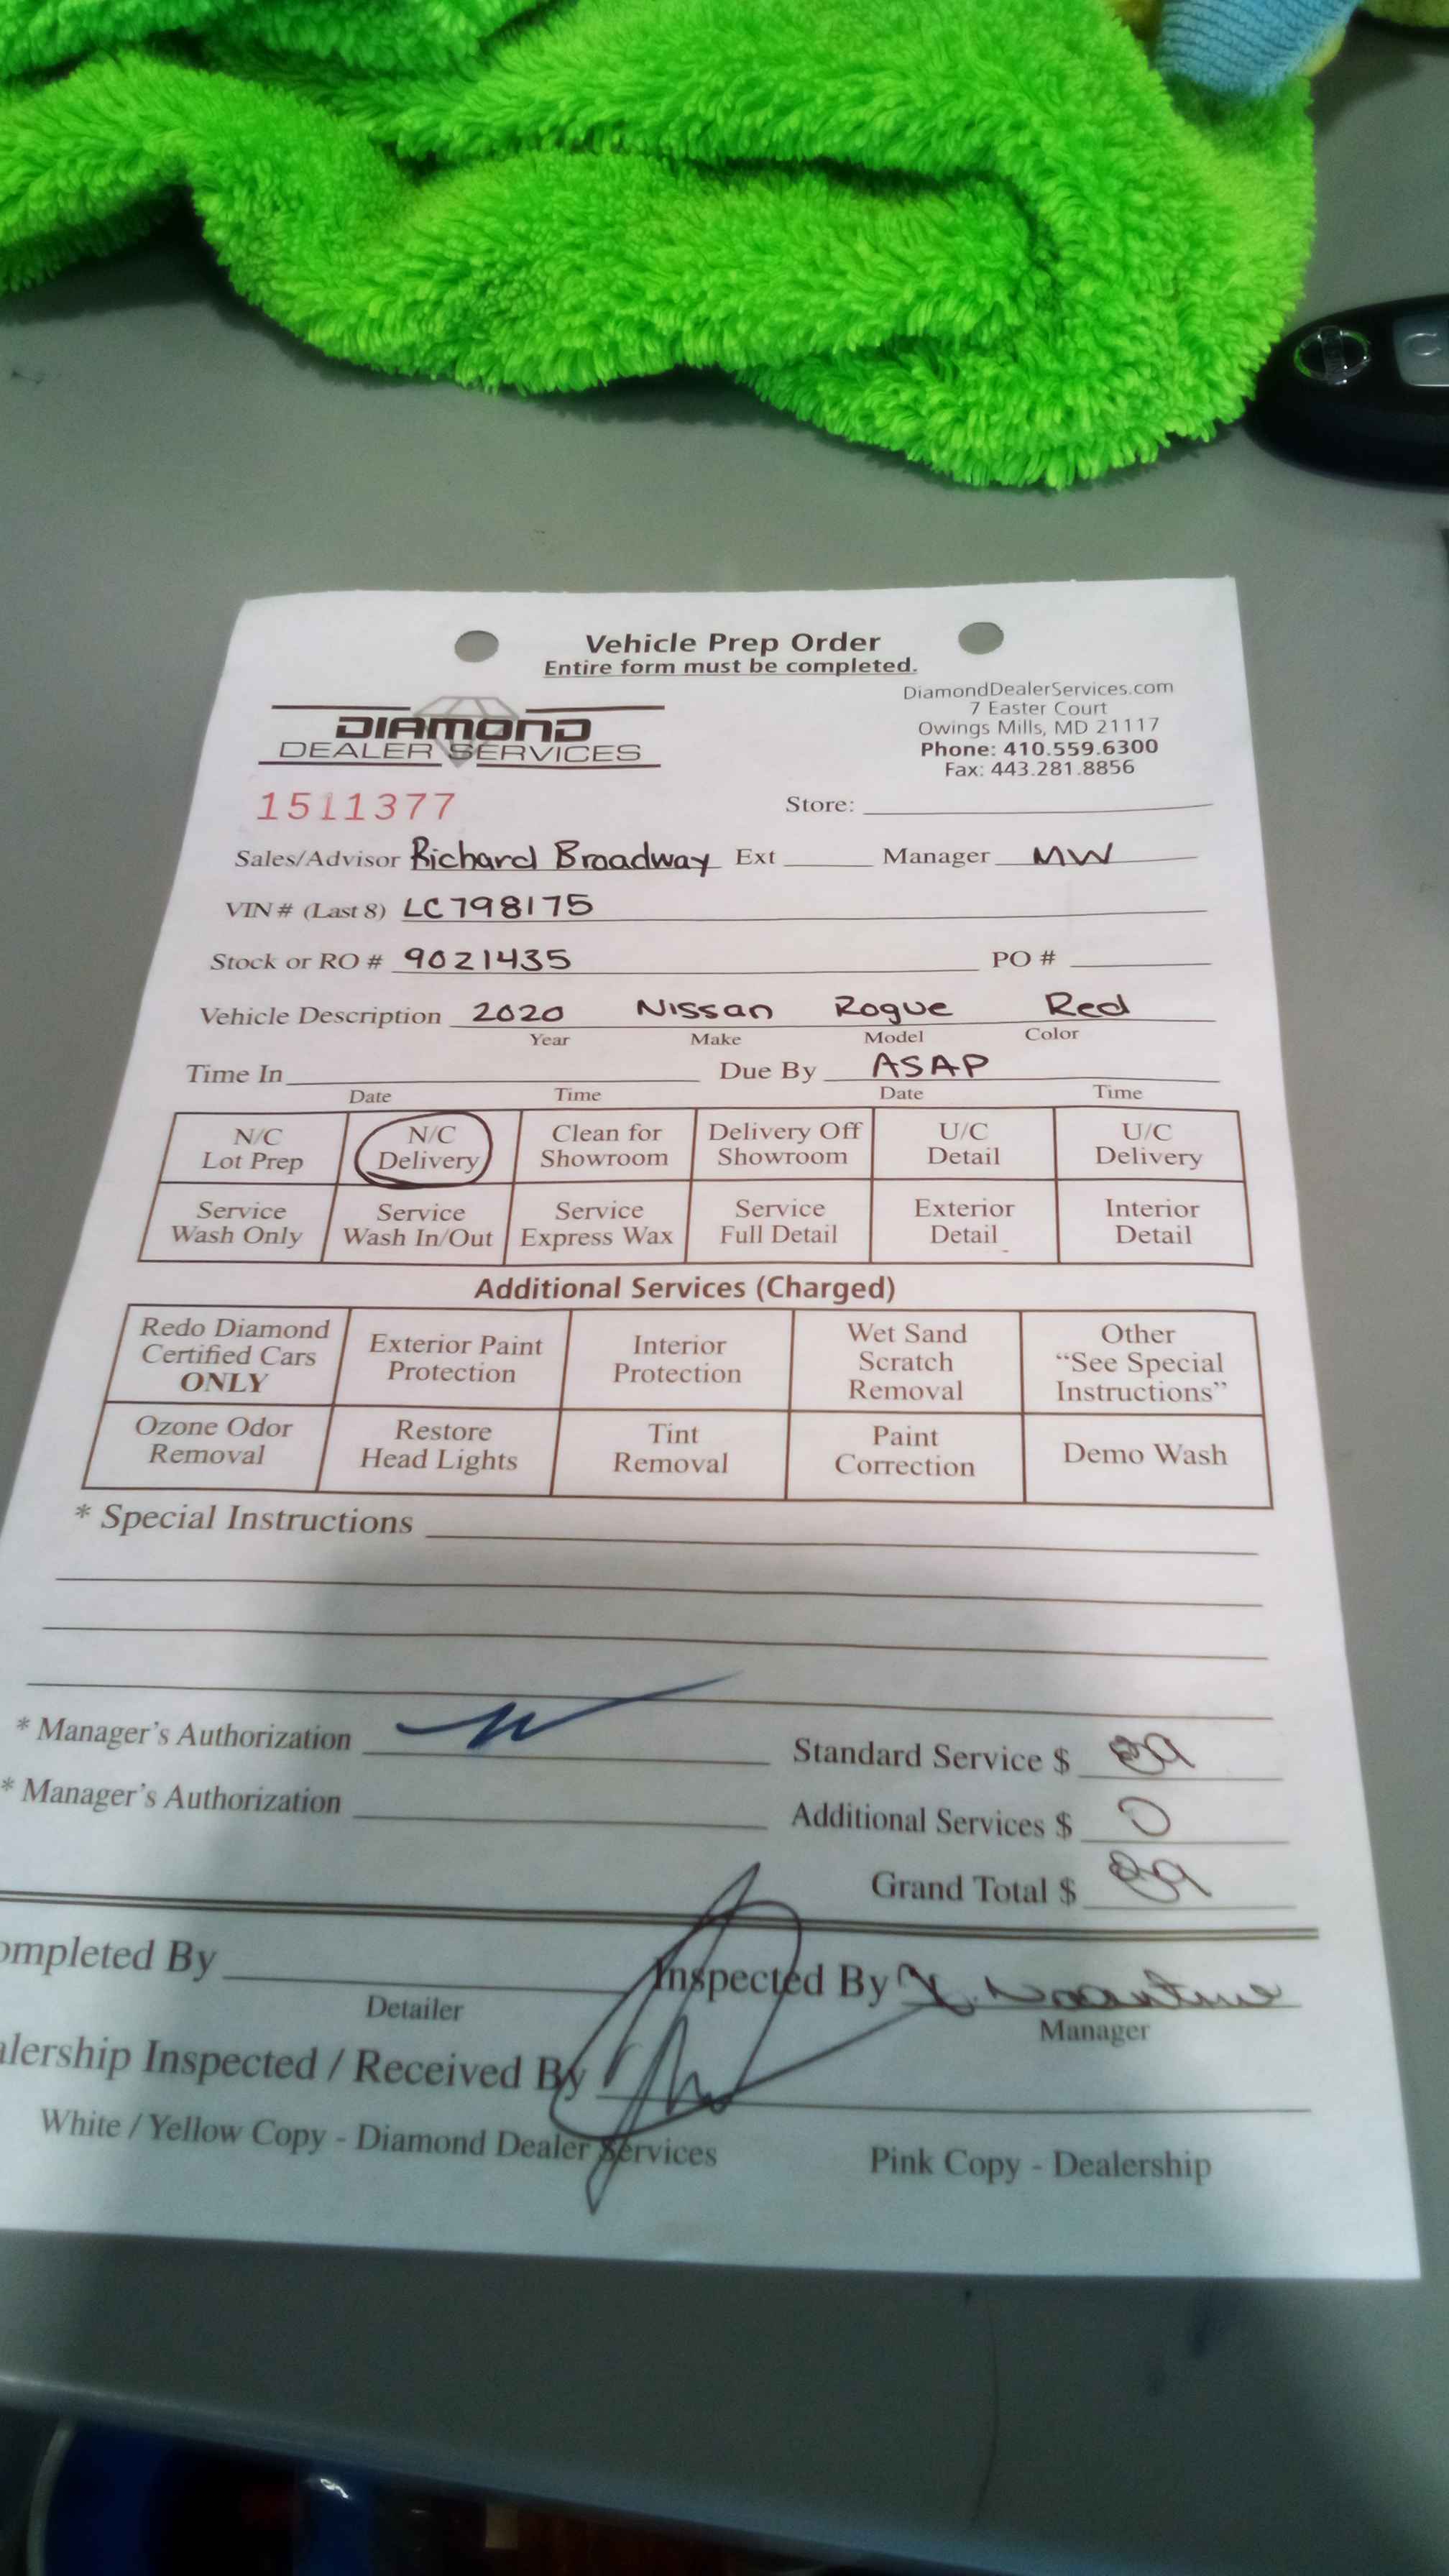 Vehicle Prep Order
Entire form must be completed.
DIAMOND
DEALER SERVICES
DiamondDealerServices.com
7 Easter Court
Owings Mills, MD 21117
Phone: 410.559.6300
Fax: 443.281.8856
1511377
Store:
Sales/Advisor Richard Broadway Ext Manager MW
VIN# (Last 8) LC798175
Stock or RO # 9021435 PO #
Vehicle Description 2020 Nissan Rogue Red
Year Make Model Color
Time In Due By ASAP
Date Time Date Time
N/C Lot Prep
N/C Delivery
Clean for Showroom
Delivery Off Showroom
U/C Detail
U/C Delivery
Service Wash Only
Service Wash In/Out
Service Express Wax
Service Full Detail
Exterior Detail
Interior Detail
Additional Services (Charged)
Redo Diamond Certified Cars ONLY
Exterior Paint Protection
Interior Protection
Wet Sand Scratch Removal
Other "See Special Instructions"
Ozone Odor Removal
Restore Head Lights
Tint Removal
Paint Correction
Demo Wash
* Special Instructions
* Manager's Authorization
Standard Service $
* Manager's Authorization
Additional Services $ 0
Grand Total $
ompleted By
Inspected By
Detailer
Manager
alership Inspected / Received By
White / Yellow Copy - Diamond Dealer Services
Pink Copy - Dealership